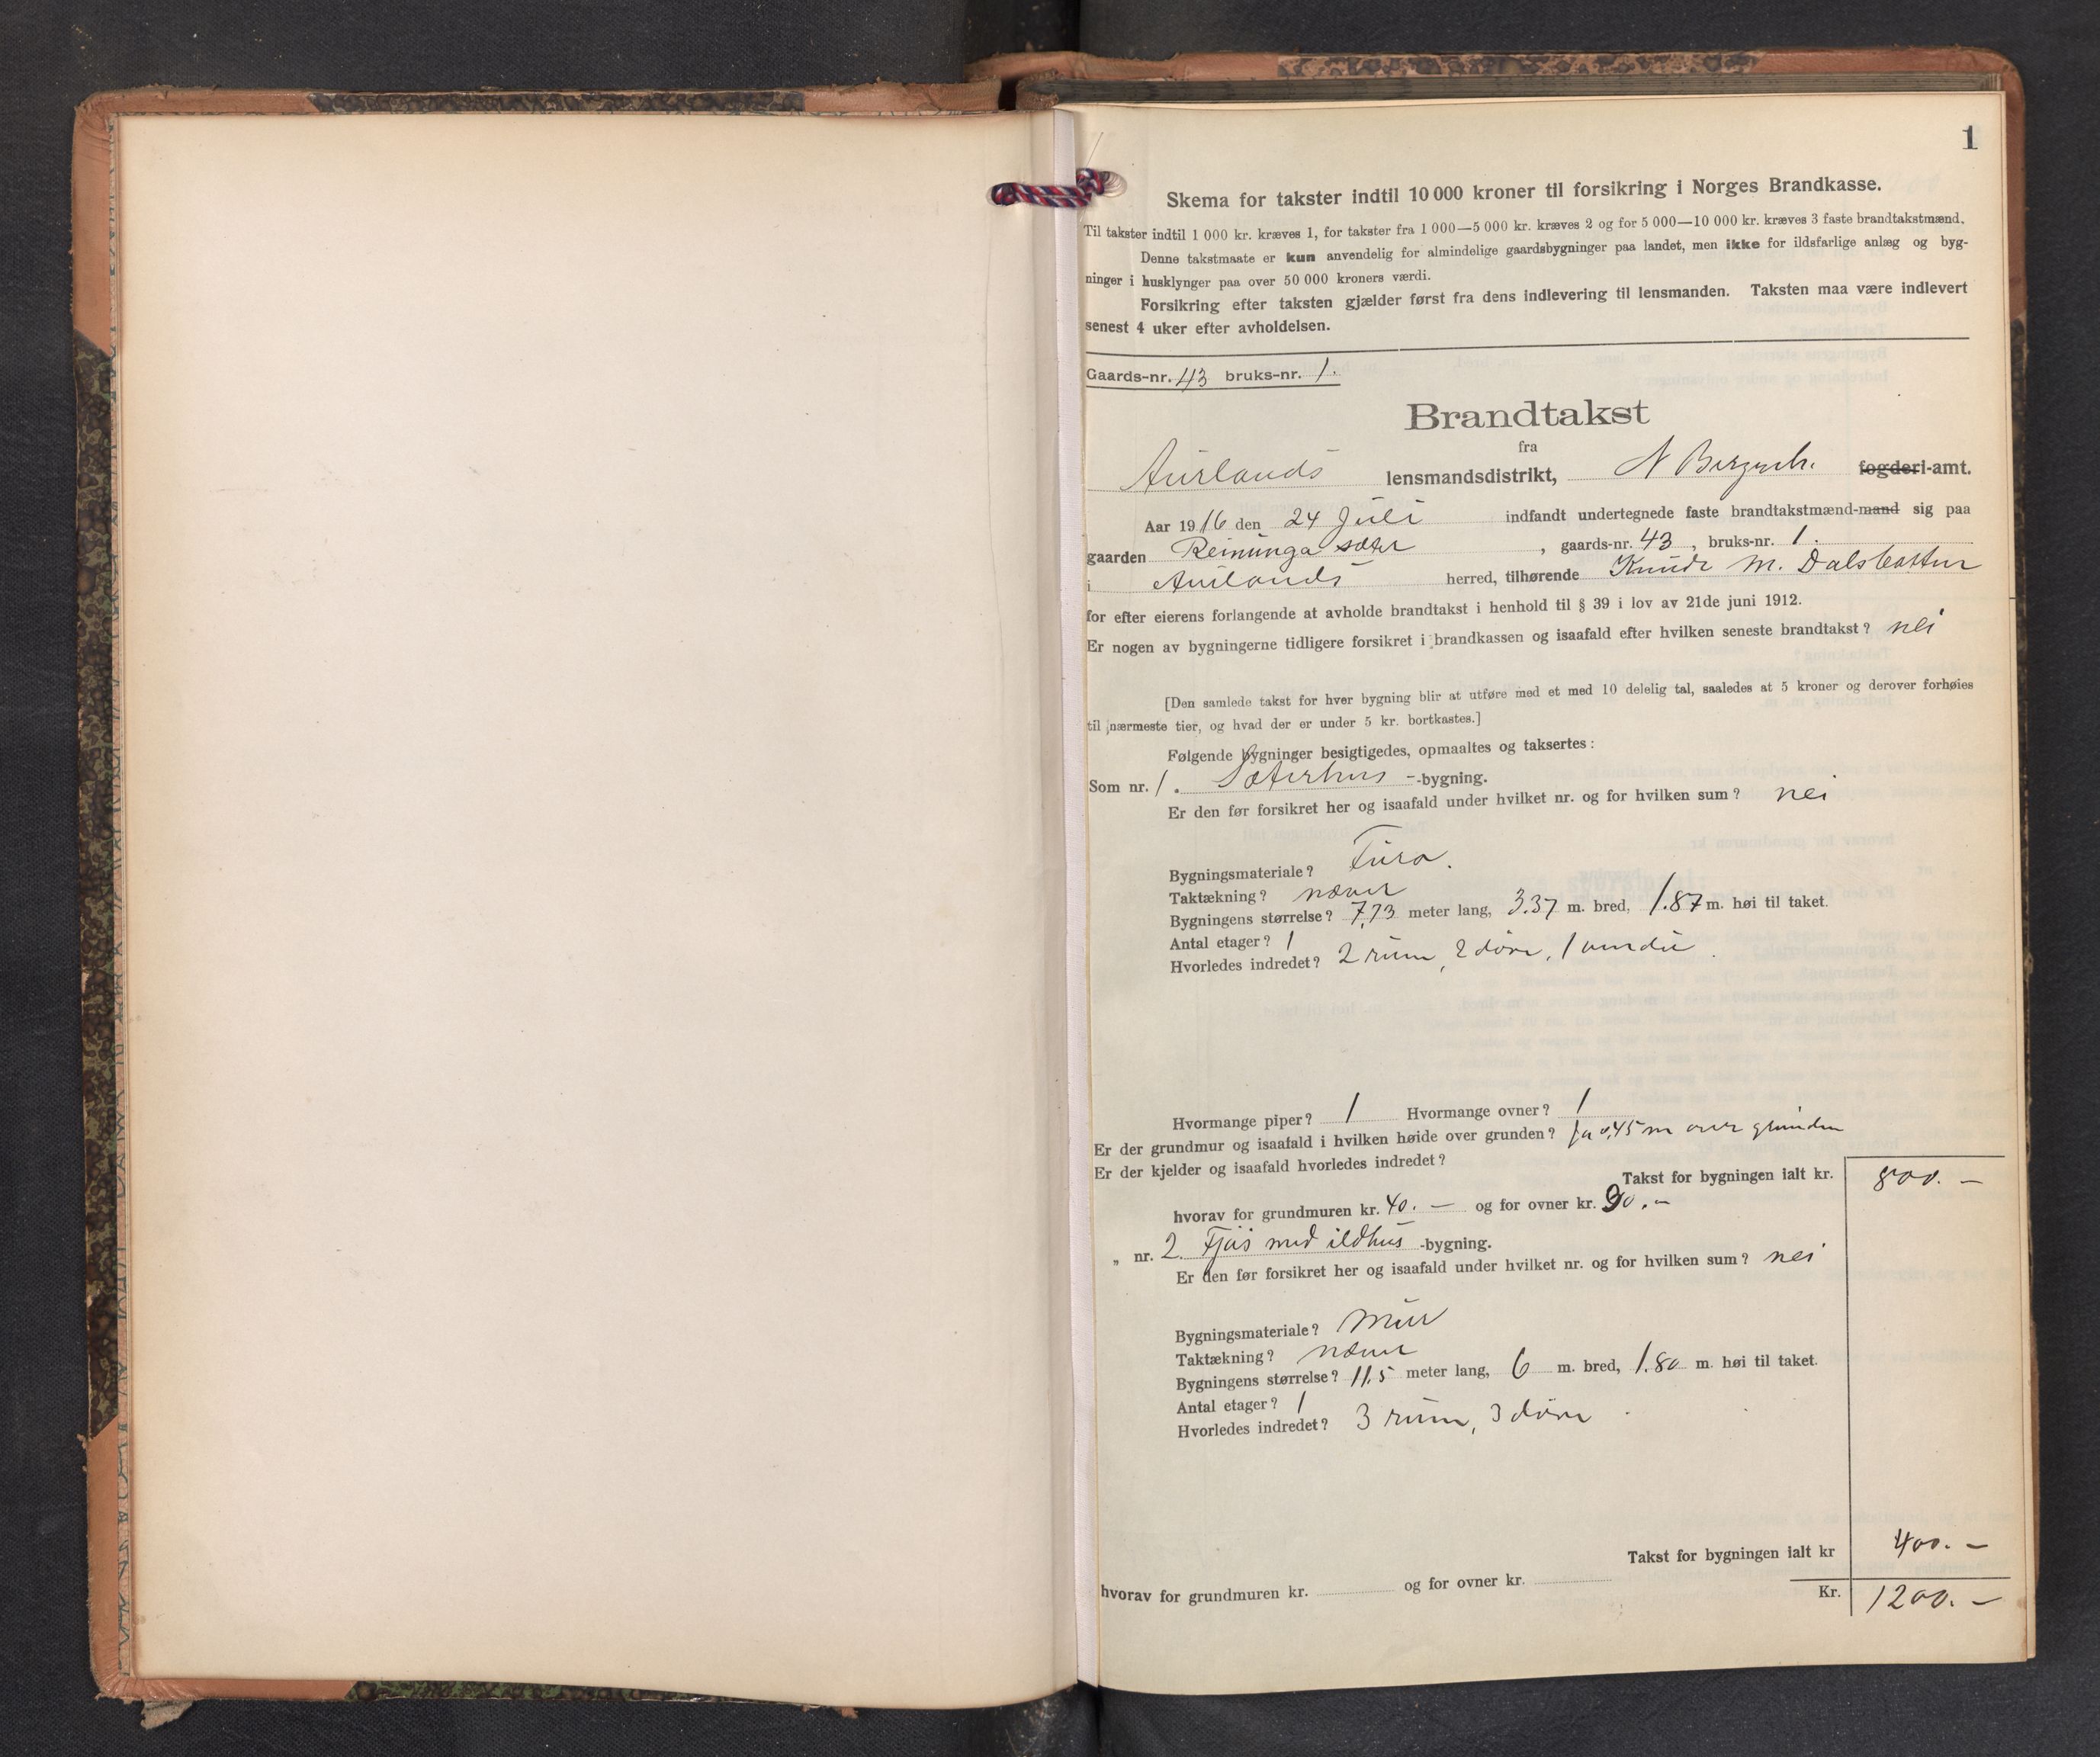 1
Skema for takster indtil 10 000 kroner til forsikring i Norges Brandkasse.
Til takster indtil 1 000 kr. kræves 1, for takster fra 1 000—5 000 kr. kræves 2 og for 5 000—10 000 kr. kræves 3 faste brandtakstmænd.
Denne takstmaate er kun anvendelig for almindelige gaardsbygninger paa landet, men ikke for ildsfarlige anlæg og byg-
ninger i husklynger paa over 50 000 kroners værdi.
Forsikring efter taksten gjælder først fra dens indlevering til lensmanden. Taksten maa være indlevert
senest 4 uker efter avholdelsen.
Gaards-nr. 43 bruks-nr. 1.
Brandtakst
fra
Aurlands lensmandsdistrikt, N Bergenh. fogderi-amt.
Aar 1916 den 24 Juli indfandt undertegnede faste brandtakstmænd-mand sig paa
gaarden Reinunga sæter, gaards-nr. 43, bruks-nr. 1.
i Aurlands herred, tilhørende Knudt M. Dalsbotten
for efter eierens forlangende at avholde brandtakst i henhold til § 39 i lov av 21de juni 1912.
Er nogen av bygningerne tidligere forsikret i brandkassen og isaafald efter hvilken seneste brandtakst? nei
[Den samlede takst for hver bygning blir at utføre med et med 10 delelig tal, saaledes at 5 kroner og derover forhøies
til nærmeste tier, og hvad der er under 5 kr. bortkastes.]
Følgende bygninger besigtigedes, opmaaltes og taksertes:
Som nr. 1. Sæterhus -bygning.
Er den før forsikret her og isaafald under hvilket nr. og for hvilken sum? nei
Bygningsmateriale? Furo.
Taktækning? næver
Bygningens størrelse? 7,73 meter lang, 3.37 m. bred, 1.87 m. høi til taket.
Antal etager? 1
Hvorledes indredet? 2 rum, 2 döre, 1 vindu.
Hvormange piper? 1 Hvormange ovner? 1
Er der grundmur og isaafald i hvilken høide over grunden? ja 0,45 m over grunden
Er der kjelder og isaafald hvorledes indredet?
Takst for bygningen ialt kr. 800. -
hvorav for grundmuren kr. 40. - og for ovner kr. 90. -
„ nr. 2. Fjös med ildhus -bygning.
Er den før forsikret her og isaafald under hvilket nr. og for hvilken sum? nei
Bygningsmateriale? Mur
Taktækning? næver
Bygningens størrelse? 11,5 meter lang, 6 m. bred, 1.80 m. høi til taket.
Antal etager? 1
Hvorledes indredet? 3 rum, 3 döre
Takst for bygningen ialt kr 400. -
hvorav for grundmuren kr. og for ovner kr.
Kr. 1200. -